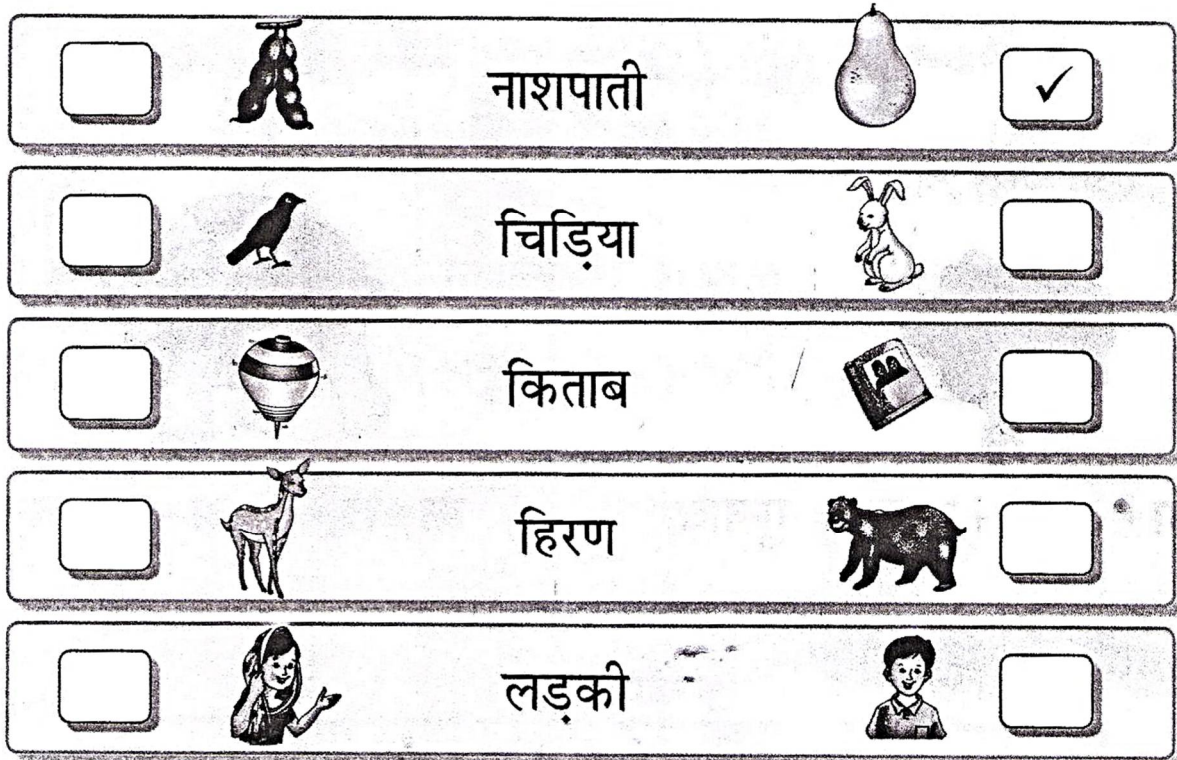 नाशपाती
चिड़िया
किताब
हिरण
लड़की